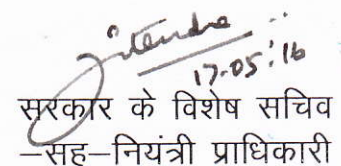 Jitendra
17.05.'16
सरकार के विशेष सचिव
–सह–नियंत्री प्राधिकारी